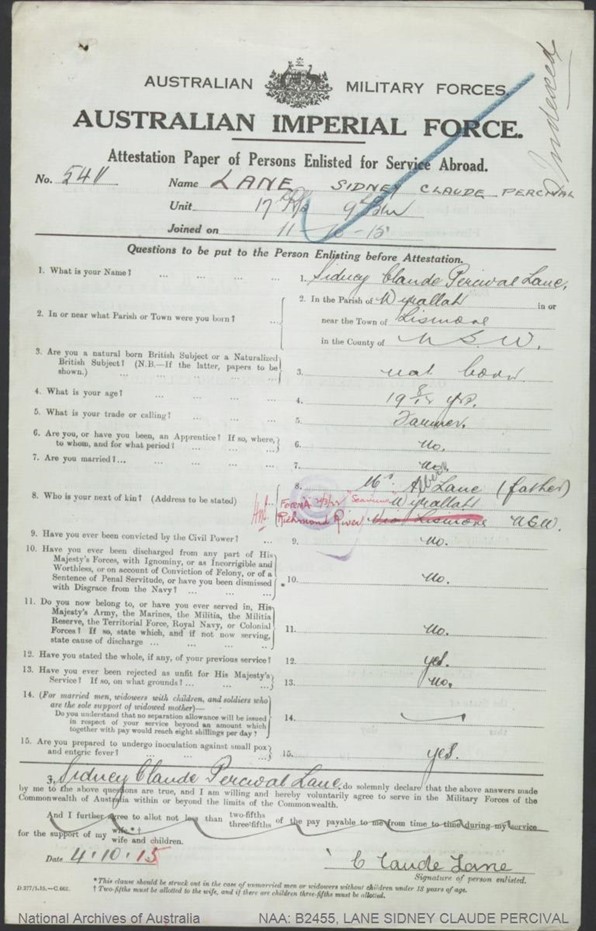 AUSTRALIAN MILITARY FORCES.
Indexed
AUSTRALIAN IMPERIAL FORCE.
Attestation Paper of Persons Enlisted for Service Abroad.
No. Name LANE SIDNEY CLAUDE PERCIVAL
Unit 17 9 Bn
Joined on 11-10-15
Questions to be put to the Person Enlisting before Attestation.
1. What is your Name? ... ... ... ... 1. Sidney Claude Percival Lane.
2. In or near what Parish or Town were you born? ... 2. In the Parish of Wyrallah in or
near the Town of Lismore
in the County of N S W.
3. Are you a natural born British Subject or a Naturalized
British Subject? (N.B.—If the latter, papers to be
shown.) ... ... ... ... 3. nat born
4. What is your age? ... ... ... ... 4. 19 yrs.
5. What is your trade or calling? ... ... ... 5. Farmer.
6. Are you, or have you been, an Apprentice? If so, where,
to whom, and for what period? ... ... ... 6. No.
7. Are you married?... ... ... ... 7. No.
8. Who is your next of kin? (Address to be stated) 8. Mr. Lane (father)
Wyrallah
Richmond River Lismore NSW.
9. Have you ever been convicted by the Civil Power? ... 9. No.
10. Have you ever been discharged from any part of His
Majesty's Forces, with Ignominy, or as Incorrigible and
Worthless, or on account of Conviction of Felony, or of a
Sentence of Penal Servitude, or have you been dismissed
with Disgrace from the Navy? ... ... ... 10. No.
11. Do you now belong to, or have you ever served in, His
Majesty's Army, the Marines, the Militia, the Militia
Reserve, the Territorial Force, Royal Navy, or Colonial
Forces? If so, state which, and if not now serving,
state cause of discharge ... ... ... 11. No.
12. Have you stated the whole, if any, of your previous service? 12. yes.
13. Have you ever been rejected as unfit for His Majesty's
Service? If so, on what grounds? ... ... 13. No.
14. (For married men, widowers with children, and soldiers who
are the sole support of widowed mother)—
Do you understand that no separation allowance will be issued
in respect of your service beyond an amount which
together with pay would reach eight shillings per day? 14.
15. Are you prepared to undergo inoculation against small pox
and enteric fever? ... ... ... ... 15. yes.
I, Sidney Claude Percival Lane, do solemnly declare that the above answers made
by me to the above questions are true, and I am willing and hereby voluntarily agree to serve in the Military Forces of the
Commonwealth of Australia within or beyond the limits of the Commonwealth.
And I further agree to allot not less than two-fifths three-fifths of the pay payable to me from time to time during my service
for the support of my wife*† wife and children.
Date 4.10.15
C Claude Lane
Signature of person enlisted.
*This clause should be struck out in the case of unmarried men or widowers without children under 18 years of age.
† Two-fifths must be allotted to the wife, and if there are children three-fifths must be allotted.
National Archives of Australia NAA: B2455, LANE SIDNEY CLAUDE PERCIVAL